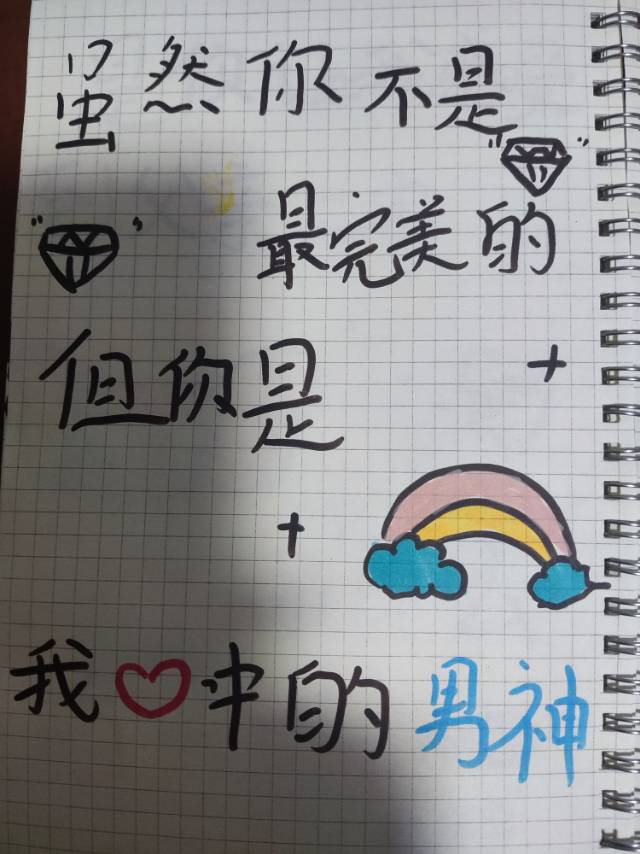 虽然你不是
最完美的
但你是
我❤中的男神